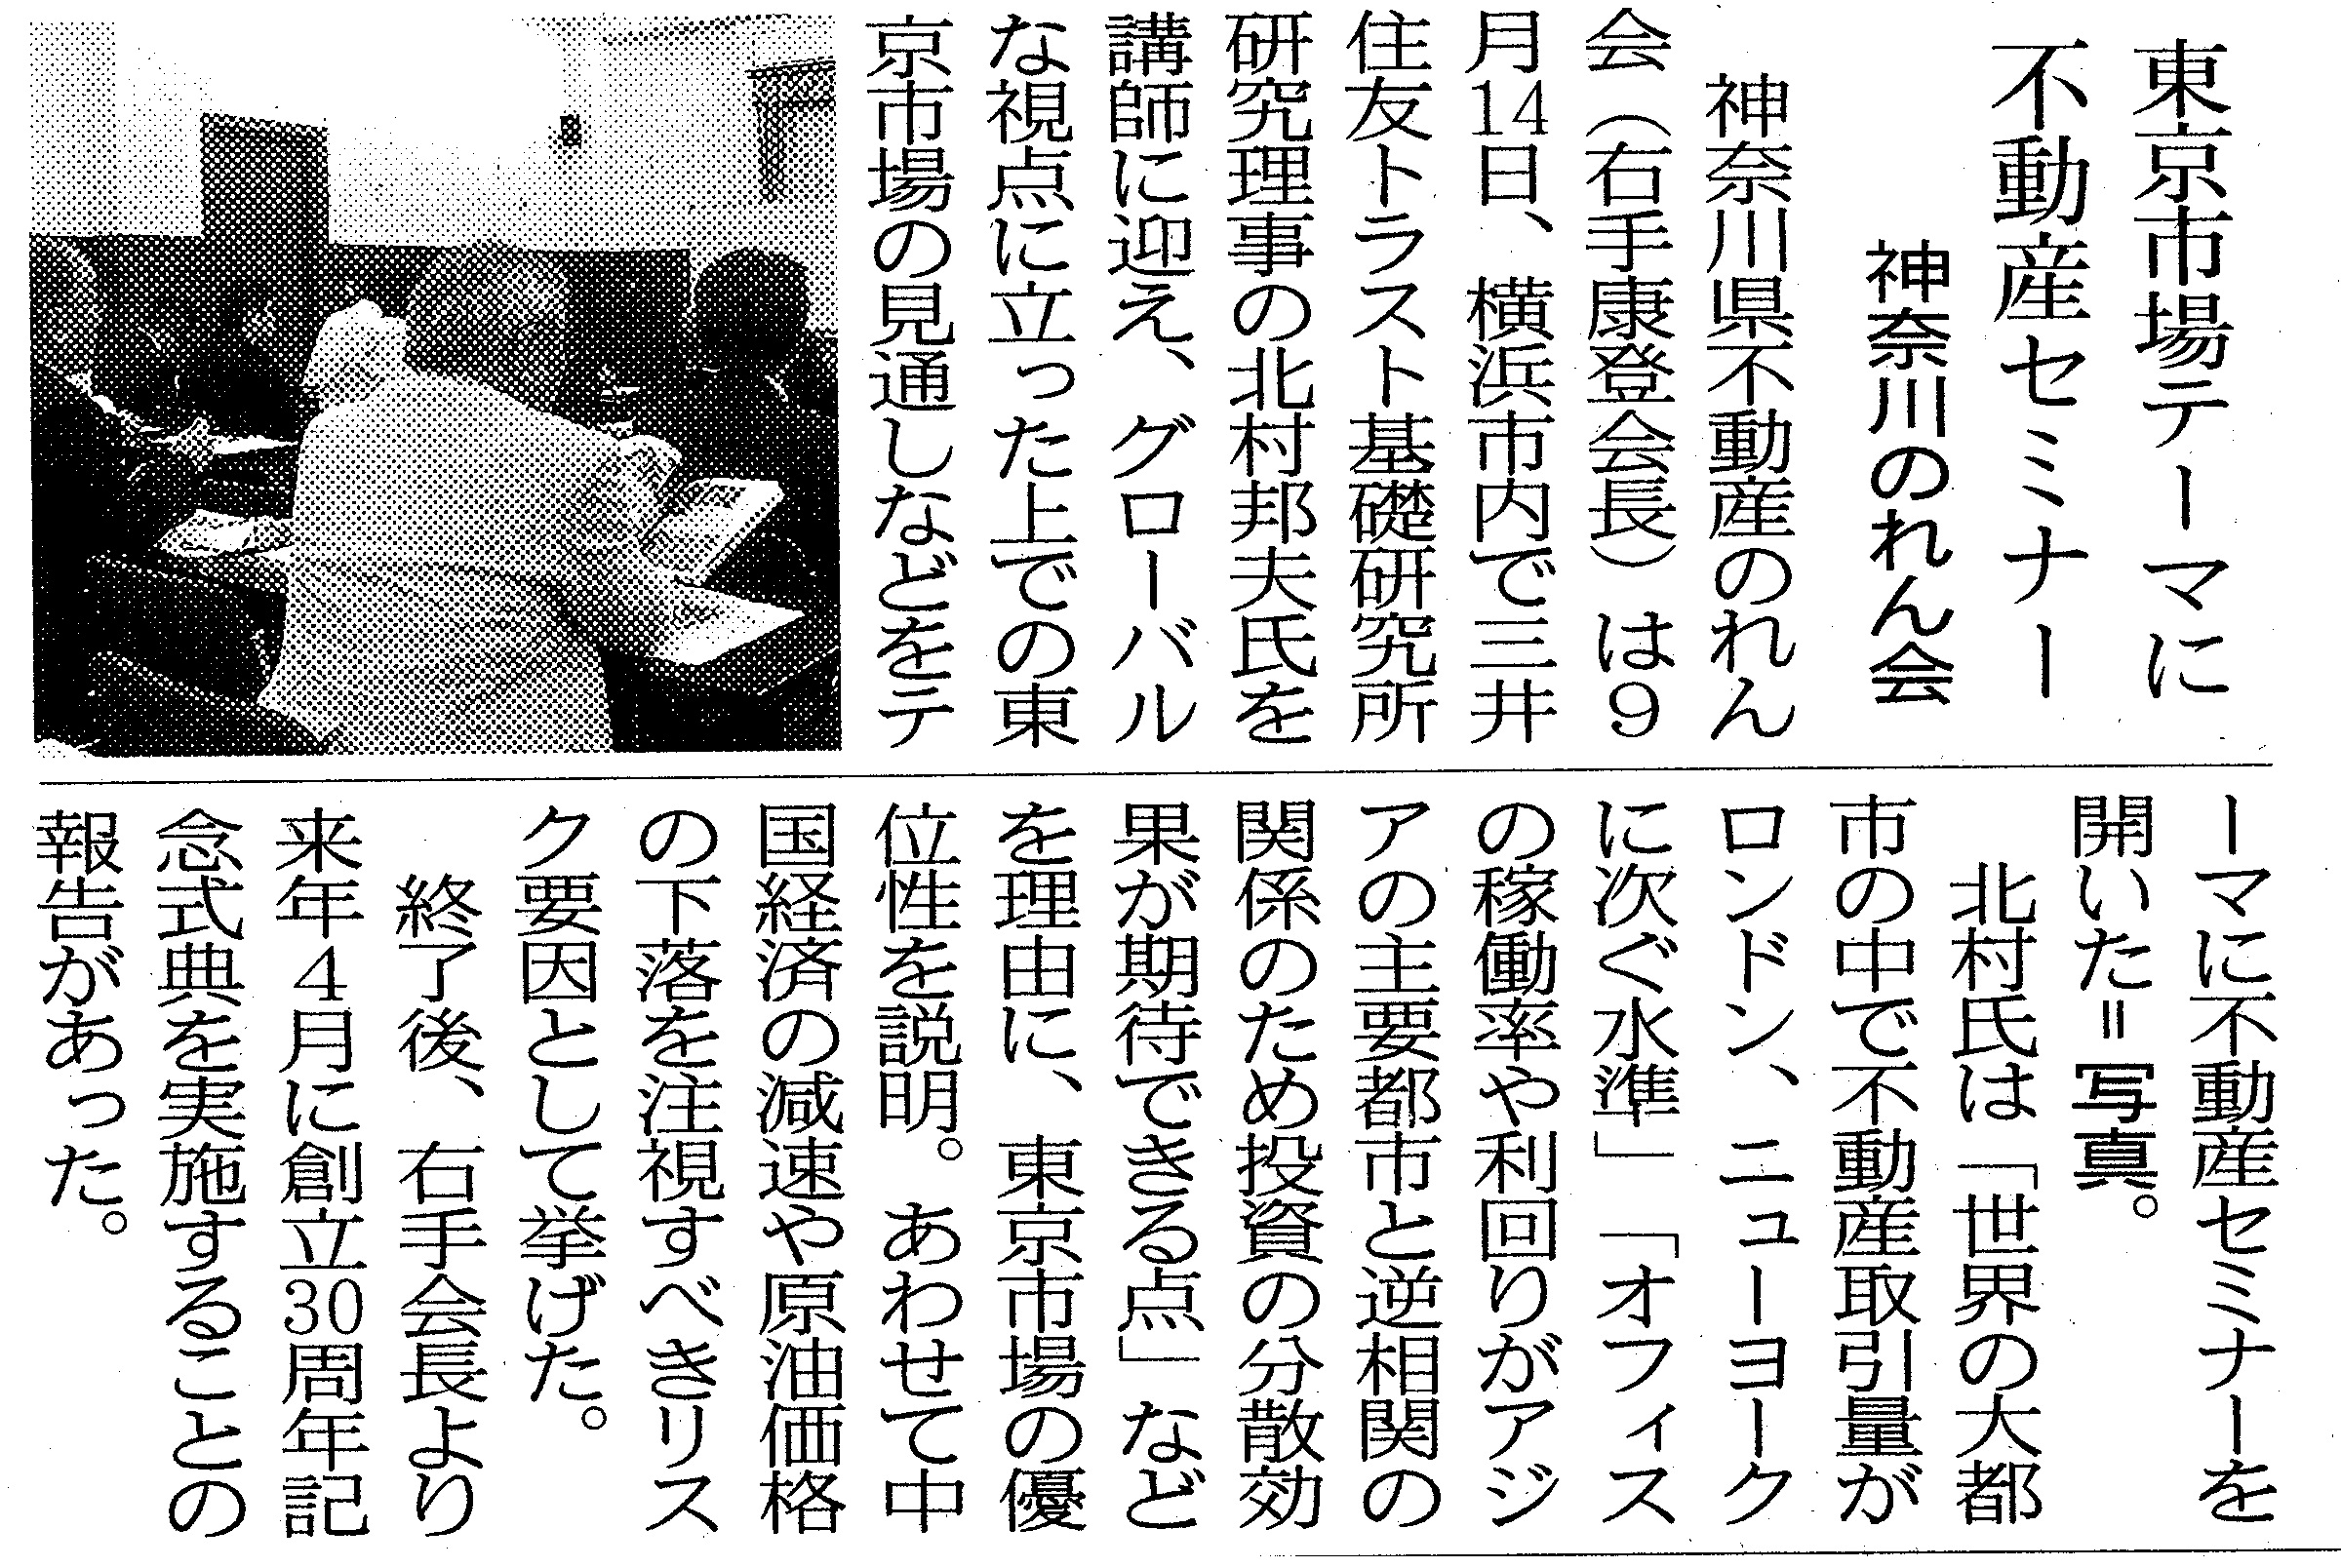 東京市場テーマに
不動産セミナー
神奈川のれん会
神奈川県不動産のれん
会（右手康登会長）は９
月14日、横浜市内で三井
住友トラスト基礎研究所
研究理事の北村邦夫氏を
講師に迎え、グローバル
な視点に立った上での東
京市場の見通しなどをテ
ーマに不動産セミナーを
開いた＝写真。
北村氏は「世界の大都
市の中で不動産取引量が
ロンドン、ニューヨーク
に次ぐ水準」「オフィス
の稼働率や利回りがアジ
アの主要都市と逆相関の
関係のため投資の分散効
果が期待できる点」など
を理由に、東京市場の優
位性を説明。あわせて中
国経済の減速や原油価格
の下落を注視すべきリス
ク要因として挙げた。
終了後、右手会長より
来年４月に創立30周年記
念式典を実施することの
報告があった。